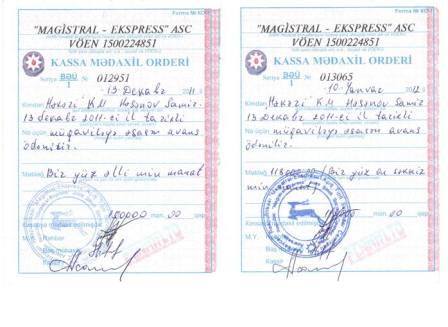 Forma № KO-1
"MAGİSTRAL - EKSPRESS" ASC
VÖEN 1500224851
KASSA MƏDAXİL ORDERİ
Seriya BƏÜ № 012951
1
13 Декабr 2011
Kimdən Mərkəzi K.M Həsənov Samir
13 Декабr 2011-ci il tarixli
Nə üçün müqaviləyə əsasən avans
ödənilir.
Məbləğ Bir yüz əlli min manat
150000 man. 00 qəp.
Kassaya mədaxil edilməlidir
M.Y. Rəhbər
Baş mühasib
Kassir
Forma № KO-1
"MAGİSTRAL - EKSPRESS" ASC
VÖEN 1500224851
KASSA MƏDAXİL ORDERİ
Seriya BƏÜ № 013065
1
10 Yanvar 2012
Kimdən Mərkəzi K.M Həsənov Samir
13 Декабr 2011-ci il tarixli
Nə üçün müqaviləyə əsasən avans
ödənilir.
Məbləğ 118000.00 (Bir yüz on səkkiz
min manat)
118000 man. 00 qəp.
M.Y.
Baş
Kassir